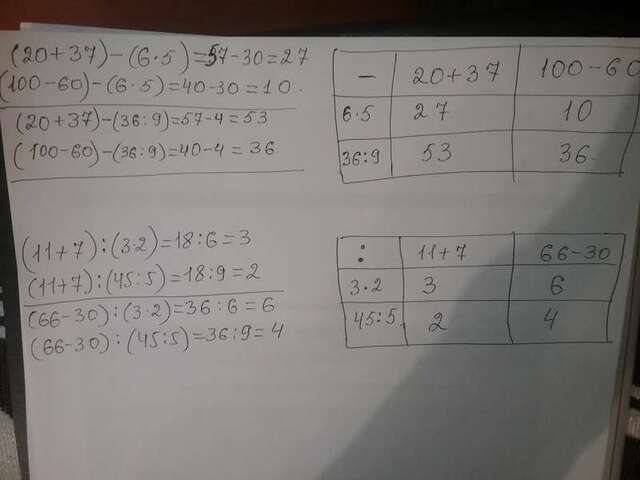 (20+37)-(6·5)=57-30=27
(100-60)-(6·5)=40-30=10.
(20+37)-(36:9)=57-4=53
(100-60)-(36:9)=40-4=36
- 20+37 100-60
6·5 27 10
36:9 53 36
(11+7):(3·2)=18:6=3
(11+7):(45:5)=18:9=2
(66-30):(3·2)=36:6=6
(66-30):(45:5)=36:9=4
: 11+7 66-30
3·2 3 6
45:5 2 4